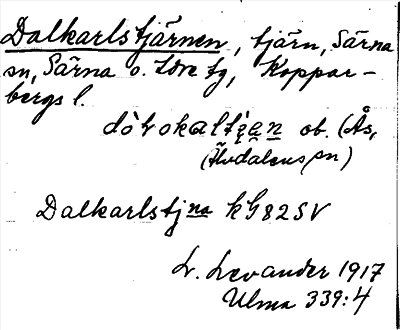 Dalkarlstjärnen, tjärn, Särna
sn, Särna o. Idre tg, Koppar-
bergs l.
ob. (Ås,
Älvdalens sn)
Dalkarlstjna kG82SV
L. Levander 1917
Ulma 339:4